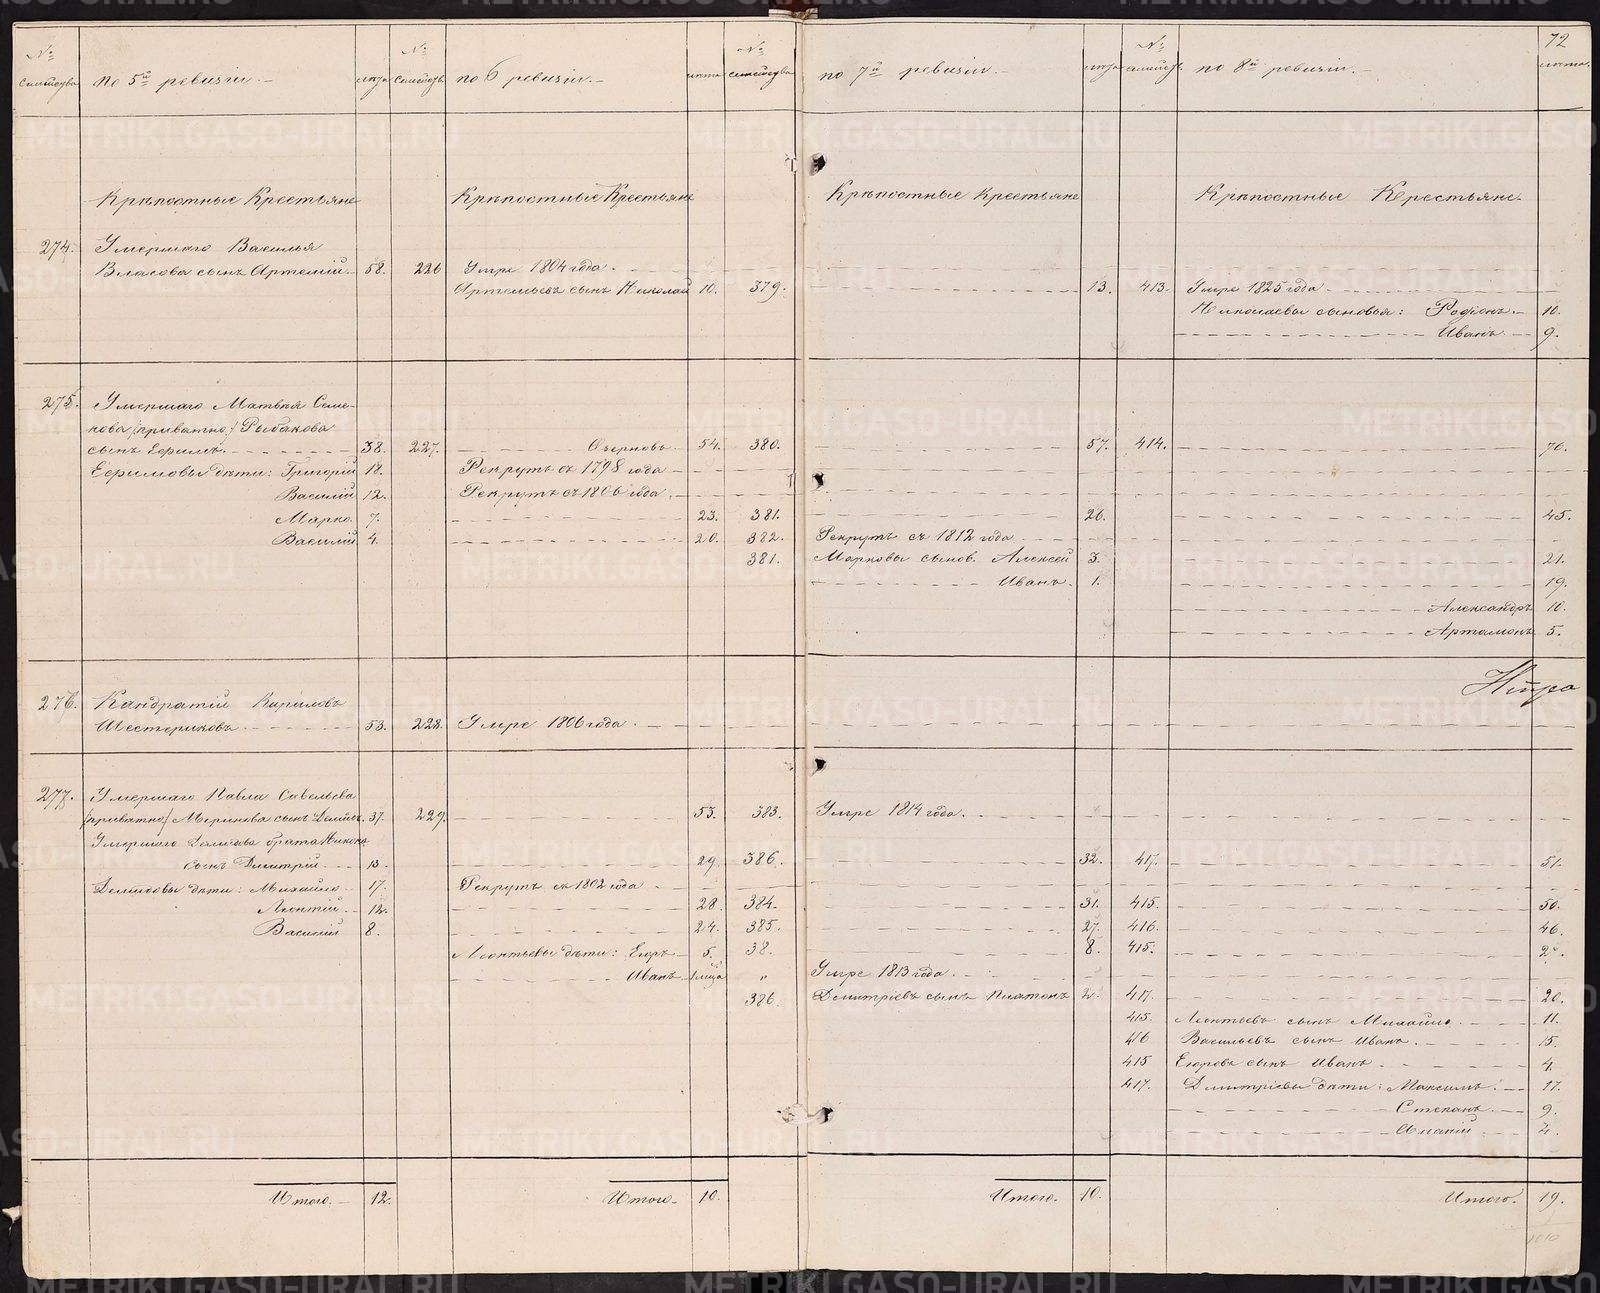 72
№ семейства по 5й ревизiи. лета
№ семейств. по 6 ревизiи. лета
№ семейства по 7й ревизiи. лета
№ семейств. по 8й ревизiи. лета.
Крѣпостные Крестьяне Крѣпостные Крестьяне Крѣпостные Крестьяне Крѣпостные Крестьяне.
274. Умершаго Василья
Власова сынъ Артемiй 58. 226 Умре 1804 года.
Артемьевъ сынъ Николай 10. 379. 13. 413. Умре 1825 года
Николаевы сыновья: Родiонъ 10.
Иванъ 9.
275. Умершаго Матвея Семе-
нова /приватно/ Рыбакова
сынъ Ефимъ. 38. 227. Озерновъ. 54. 380. 57. 414. 70.
Ефимовы дѣти: Григорiй 18. Рекрутъ съ 1798 года
Василiй 12. Рекрутъ съ 1806 года.
Марко. 7. 23. 381. 26. 45.
Василiй 4. 20. 382. Рекрутъ съ 1812 года
381. Марковы сынов. Алексей 3. 21.
Иванъ. 1. 19.
Александръ 10.
Артамонъ 5.
276. Кандратiй Кариловъ
Шестериковъ 53. 228. Умре 1806 года.
277. Умершаго Павла Савельева
/приватно/ Меринова сынъ Демидъ. 37. 229. 53. 383. Умре 1814 года.
Умершаго Демидова брата Никона
сынъ Дмитрiй 13. 29. 386. 32. 417. 51.
Демидовы дѣти: Михайло 17. Рекрутъ съ 1802 года
Леонтiй 12. 28. 384. 31. 415. 50.
Василiй 8. 24. 385. 27. 416. 46.
Леонтьевы дѣти: Егоръ 5. 38. 8. 415.
Иванъ 1 мца " Умре 1813 года.
386. Дмитрiевъ сынъ Платонъ 2. 417. 20.
415. Леонтьевъ сынъ Михайло. 11.
416 Васильевъ сынъ Иванъ. 15.
415 Егоровъ сынъ Иванъ 4.
417. Дмитрiевы дѣти: Максимъ. 17.
Степанъ. 9.
Итого. 12. Итого. 10. Итого. 10. Итого. 19.
METRIKI.GASO-URAL.RU